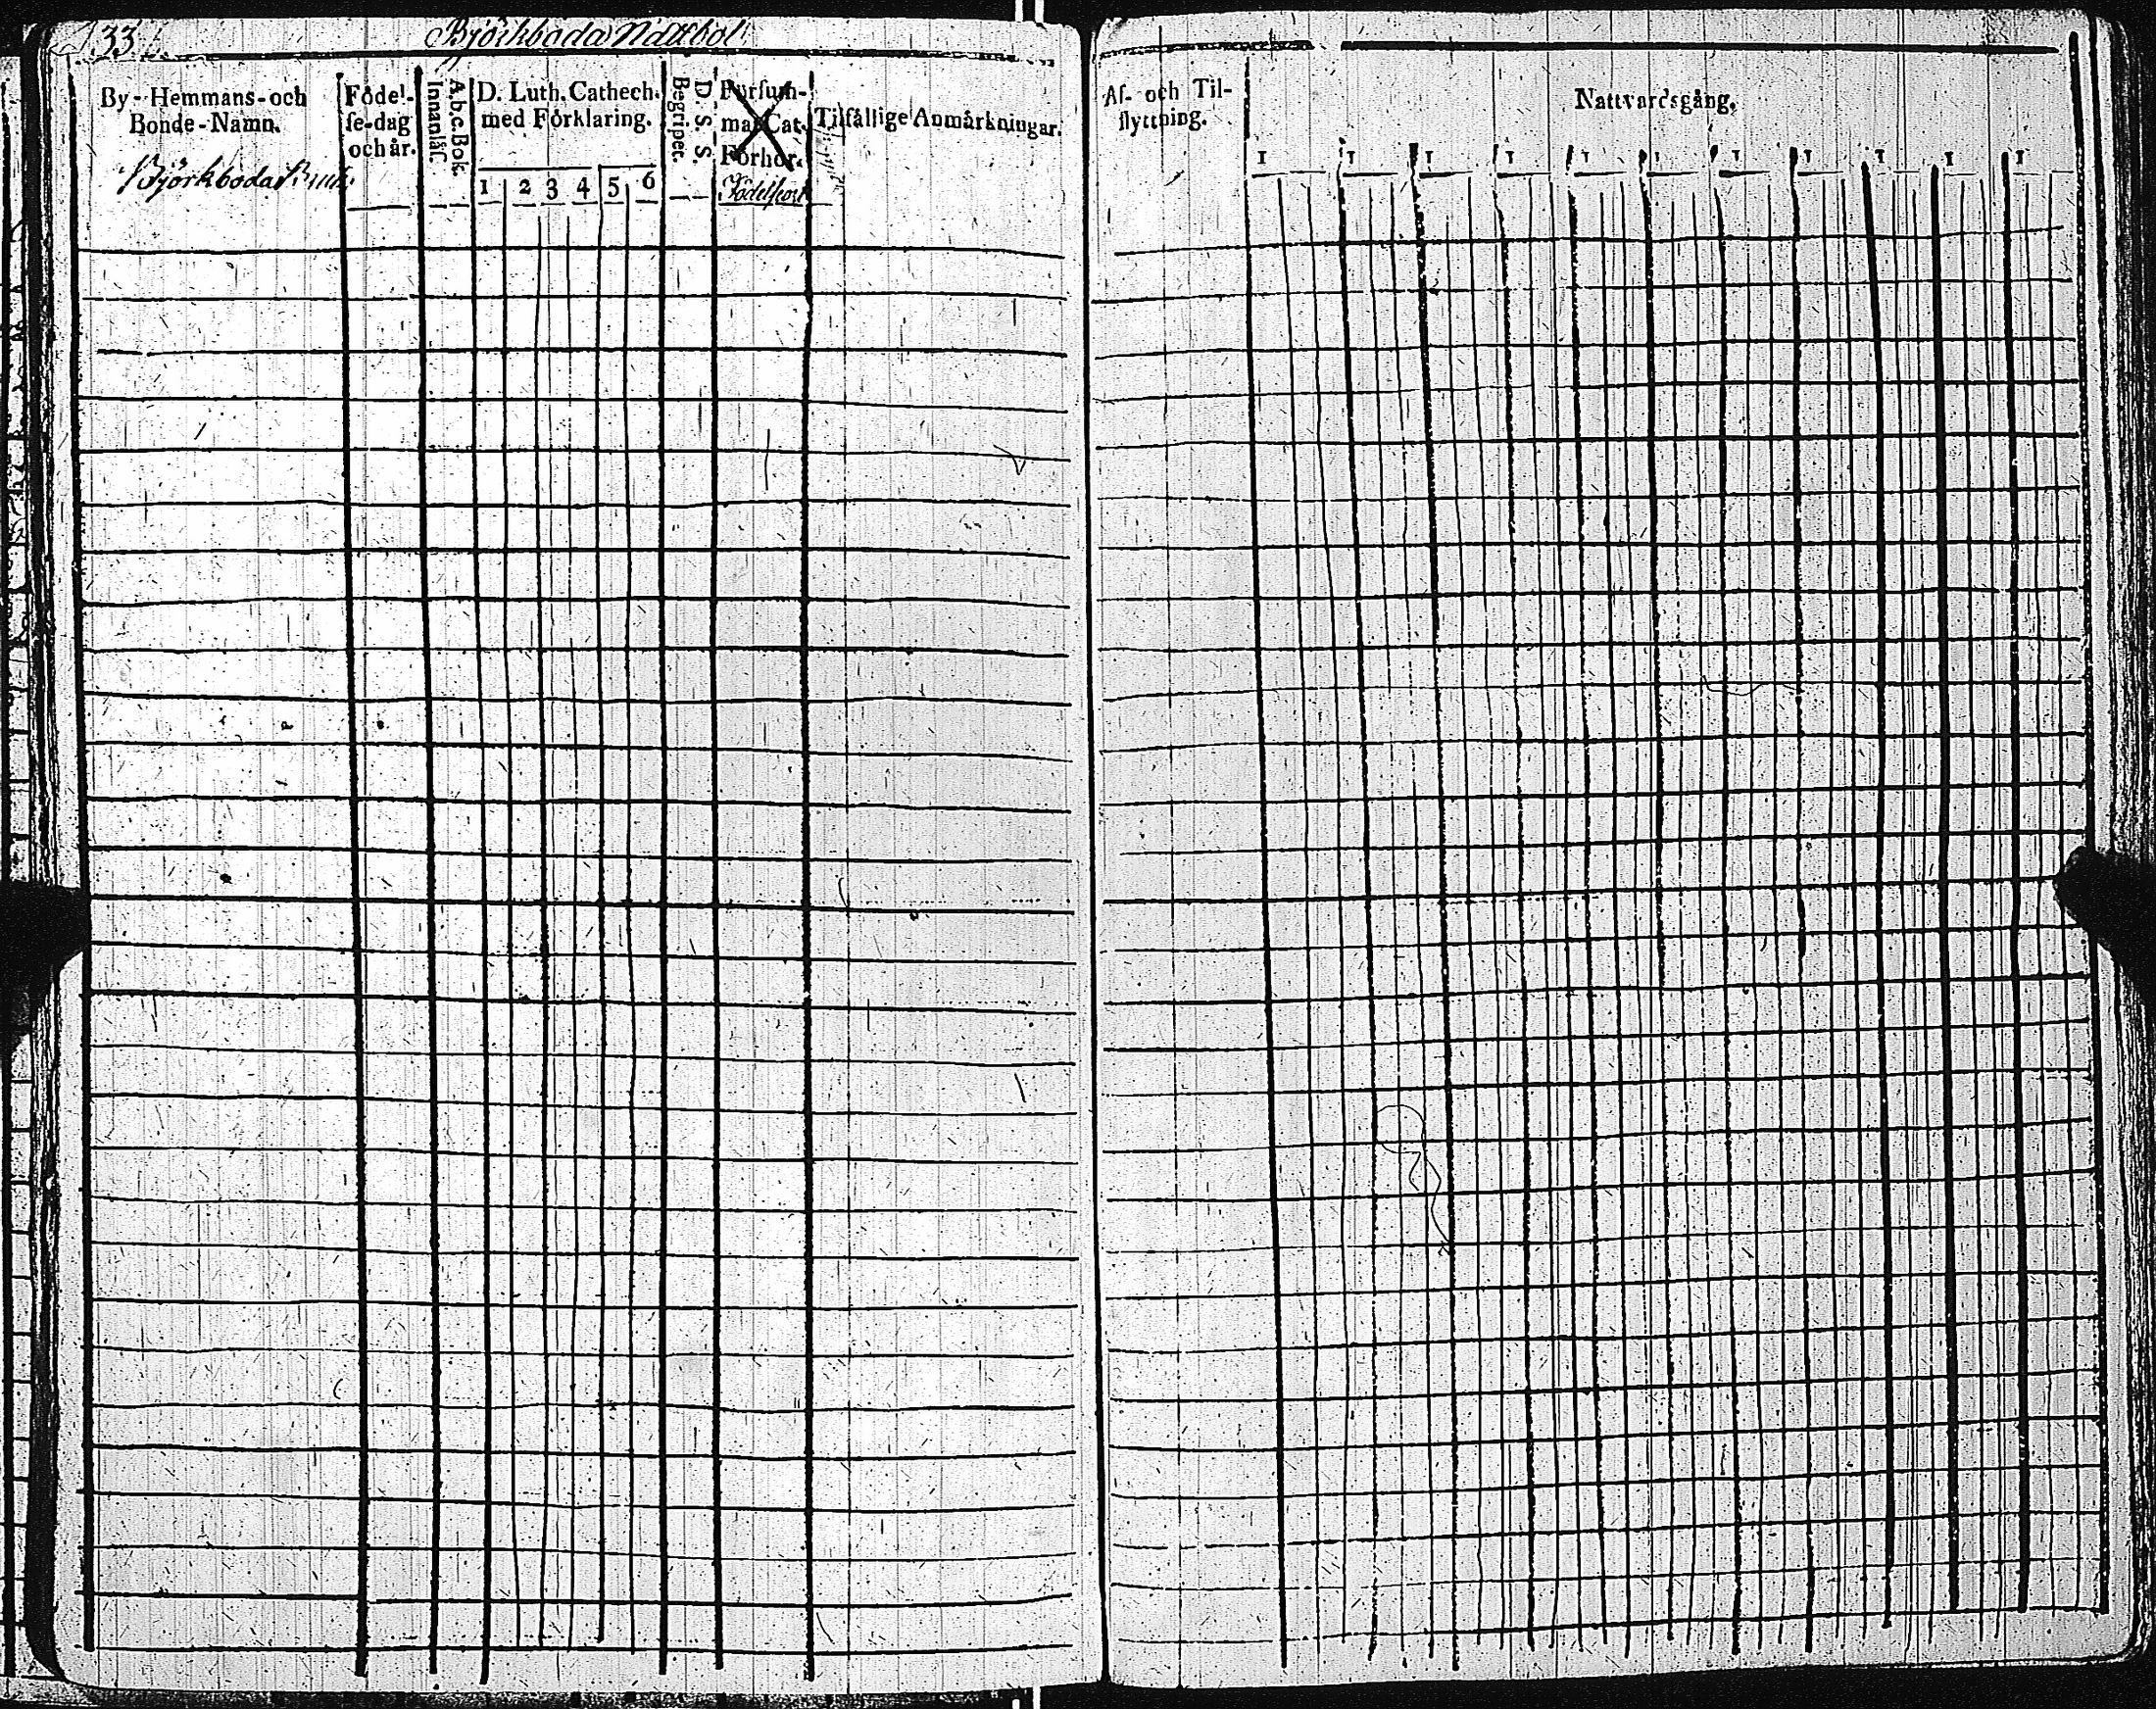 33
Björkboda Nattbol
By-Hemmans-och
Bonde-Namn.
Björkboda Bruk
Födel-
se-dag
och år.
A.b.c. Bok.
Innanläs.
D. Luth. Cathech.
med Förklaring.
1 2 3 4 5 6
D. S. S.
Begriper.
Försum-
mat Cat.
Förhör.
Födelseort
Tilfällige Anmärkningar.
Af- och Til-
flyttning.
Nattvardsgång.
1 1 1 1 1 1 1 1 1 1 1